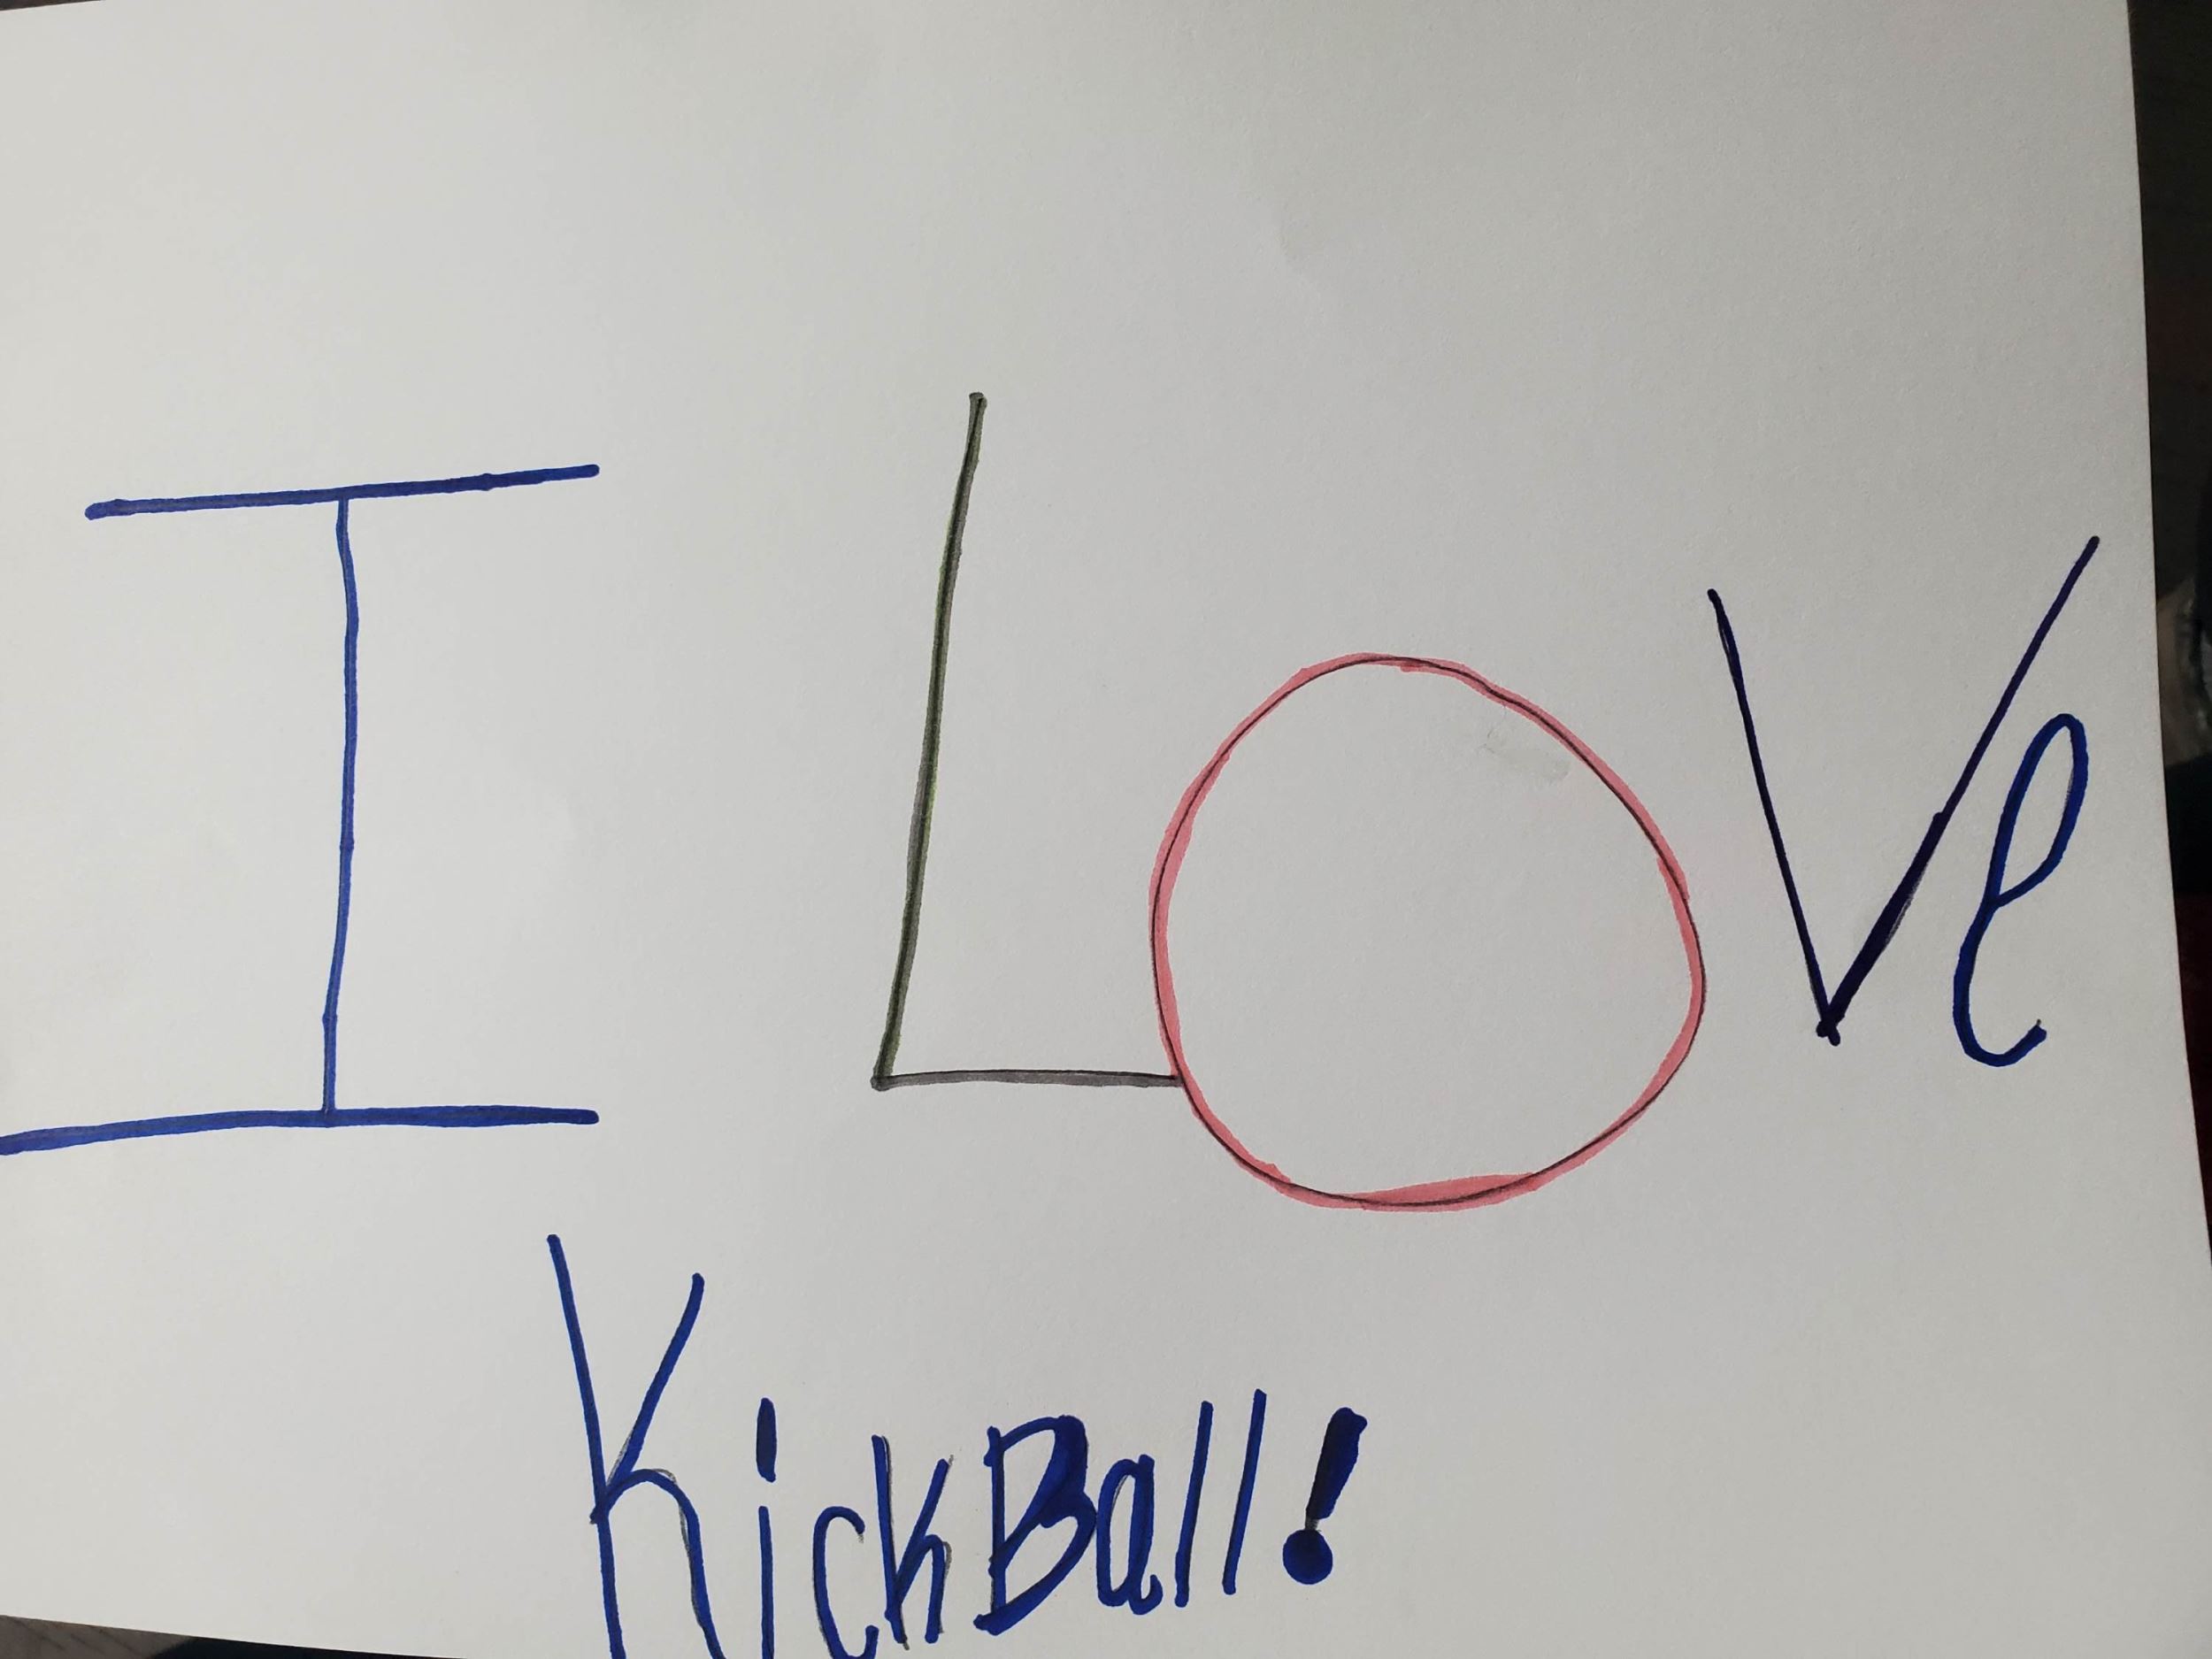 I LOVe
KickBall!